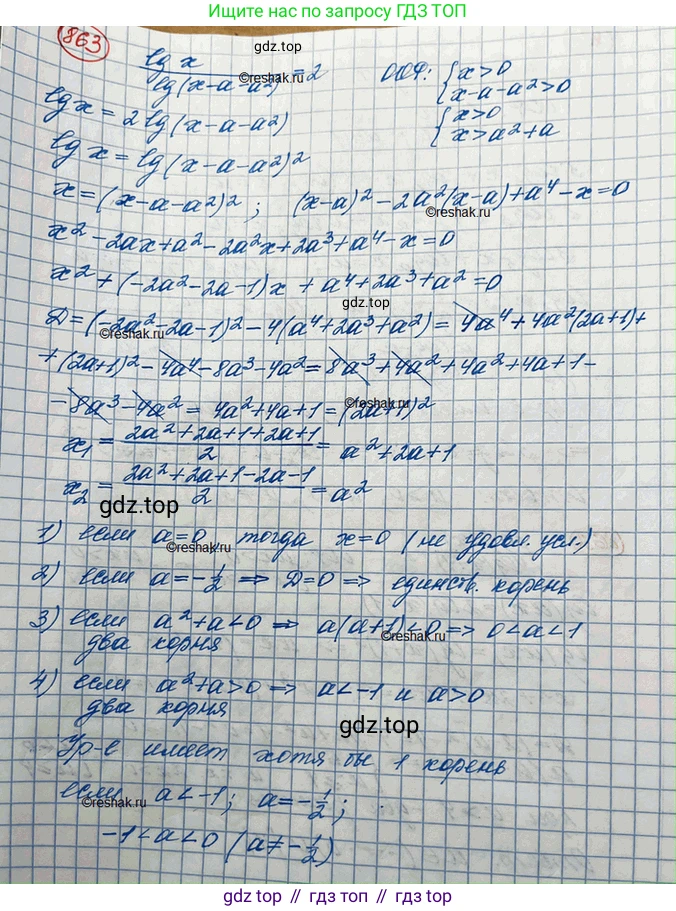 Нашли ещё по запросу ГДЗ ТОП
863
lg x / lg(x-a-a²) = 2   ООФ: { x>0
{ x-a-a²>0
gdz.top
©reshak.ru
lg x = 2 lg(x-a-a²)   { x>0
{ x>a²+a
lg x = lg(x-a-a²)²
x = (x-a-a²)² ; (x-a)² - 2a²(x-a) + a⁴ - x = 0
©reshak.ru
x² - 2ax + a² - 2a²x + 2a³ + a⁴ - x = 0
x² + (-2a² - 2a - 1)x + a⁴ + 2a³ + a² = 0
gdz.top
Д = (-2a² - 2a - 1)² - 4(a⁴ + 2a³ + a²) = 4a⁴ + 4a²(2a+1) +
©reshak.ru
+ (2a+1)² - 4a⁴ - 8a³ - 4a² = 8a³ + 4a² + 4a² + 4a + 1 -
- 8a³ - 4a² = 4a² + 4a + 1 = (2a+1)²
©reshak.ru
x₁ = (2a² + 2a + 1 + 2a + 1) / 2 = a² + 2a + 1
x₂ = (2a² + 2a + 1 - 2a - 1) / 2 = a²
gdz.top
1) если a=0, тогда x=0 (не удовл. усл.)
©reshak.ru
2) если a = -1/2 ⇒ Д=0 ⇒ единств. корень
3) если a²+a<0 ⇒ a(a+1)<0 ⇒ 0<a<1
©reshak.ru
два корня
4) если a²+a>0 ⇒ a<-1 и a>0
два корня
gdz.top
Ур-е имеет хотя бы 1 корень
если a<-1; a=-1/2;
©reshak.ru
-1<a<0 (a≠-1/2)
gdz.top // гдз.топ // gdz.top // гдз.топ